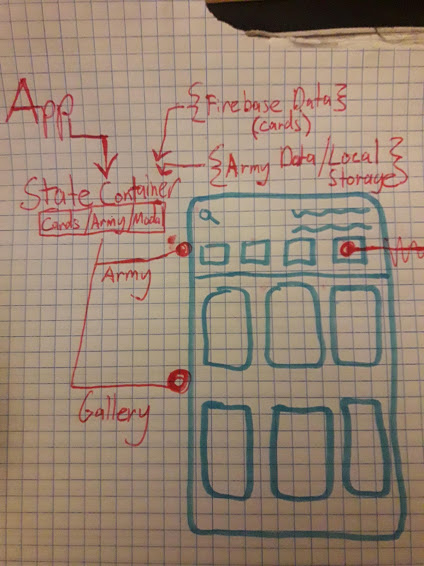 App
{Firebase Data}
(cards)
{Army Data/Local
Storage}
State Container
Cards/Army/Moda
Army
Gallery